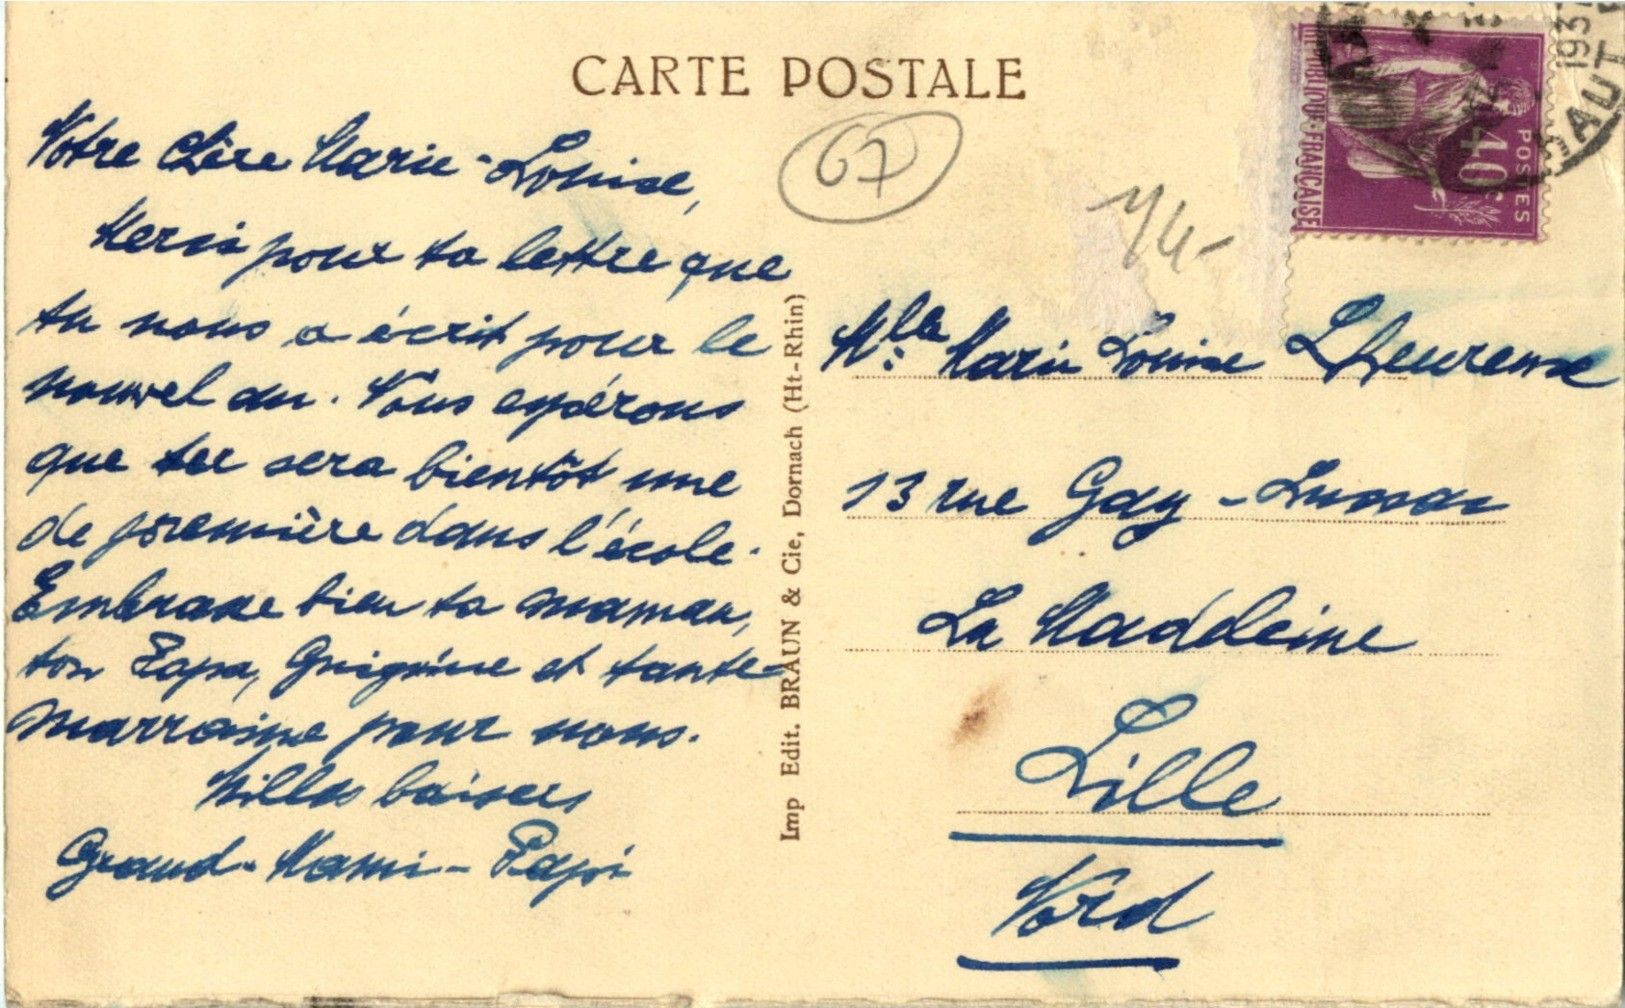 CARTE POSTALE
67
Notre chère Marie-Louise,
Merci pour ta lettre que
tu nous a écrit pour le
nouvel an. Nous espérons
que tu sera bientôt une
de première dans l'école.
Embrasse bien ta maman,
ton Papa, et tante-
marraine pour nous.
Milles baisers
Grand-Mami-Papi
Imp Edit. BRAUN & Cie, Dornach (Ht-Rhin)
RÉPUBLIQUE·FRANÇAISE
POSTES
40c
193
HAUT
Mlle Marie Louise Lheureux
13 rue Gay-Lussac
La Madeleine
Lille
Nord